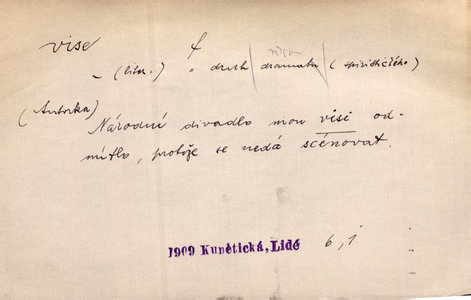 vise f
~ (liter.) = druh dramatu (spiritistického)
(Autorka)
Národní divadlo mou visi od-
mítlo, protože se nedá scénovat.
1909 Kunětická, Lidé 6, 1